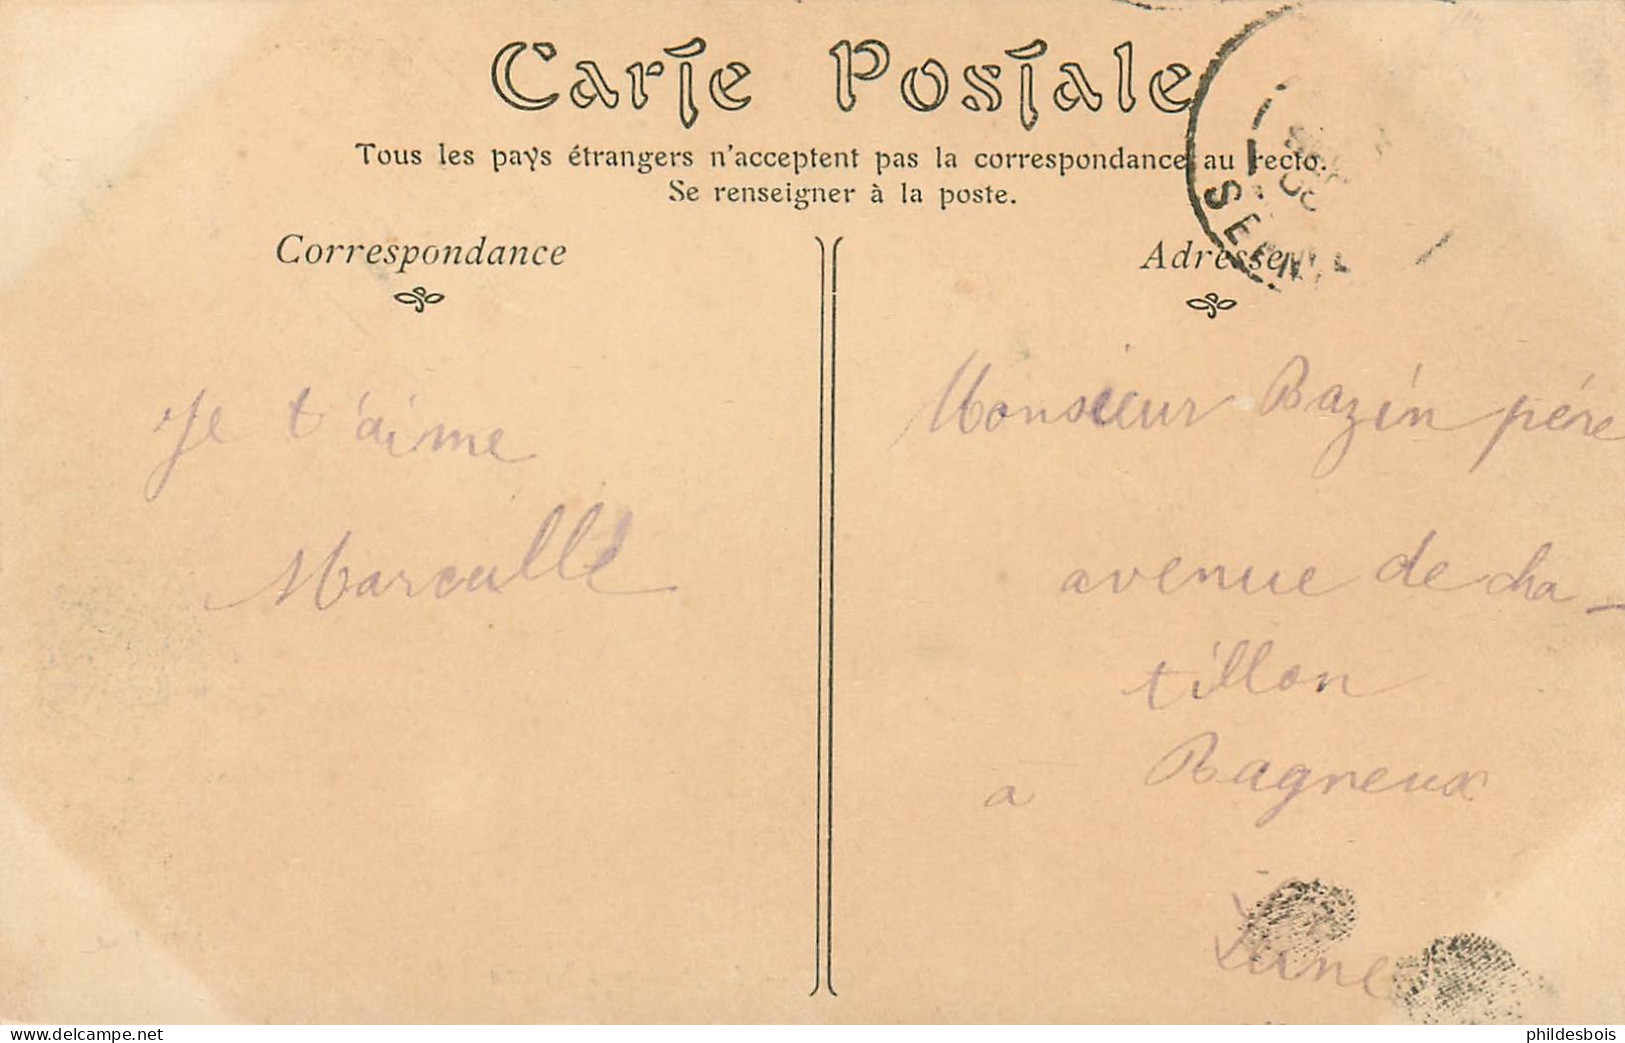 Carte Postale
Tous les pays étrangers n'acceptent pas la correspondance au recto.
Se renseigner à la poste.
Correspondance
Adresse
SEINE
Je t'aime
Marcelle
Monsieur Bazin père
avenue de cha-
tillon
à Bagneux
Seine
https://www.delcampe.net
phildesbois